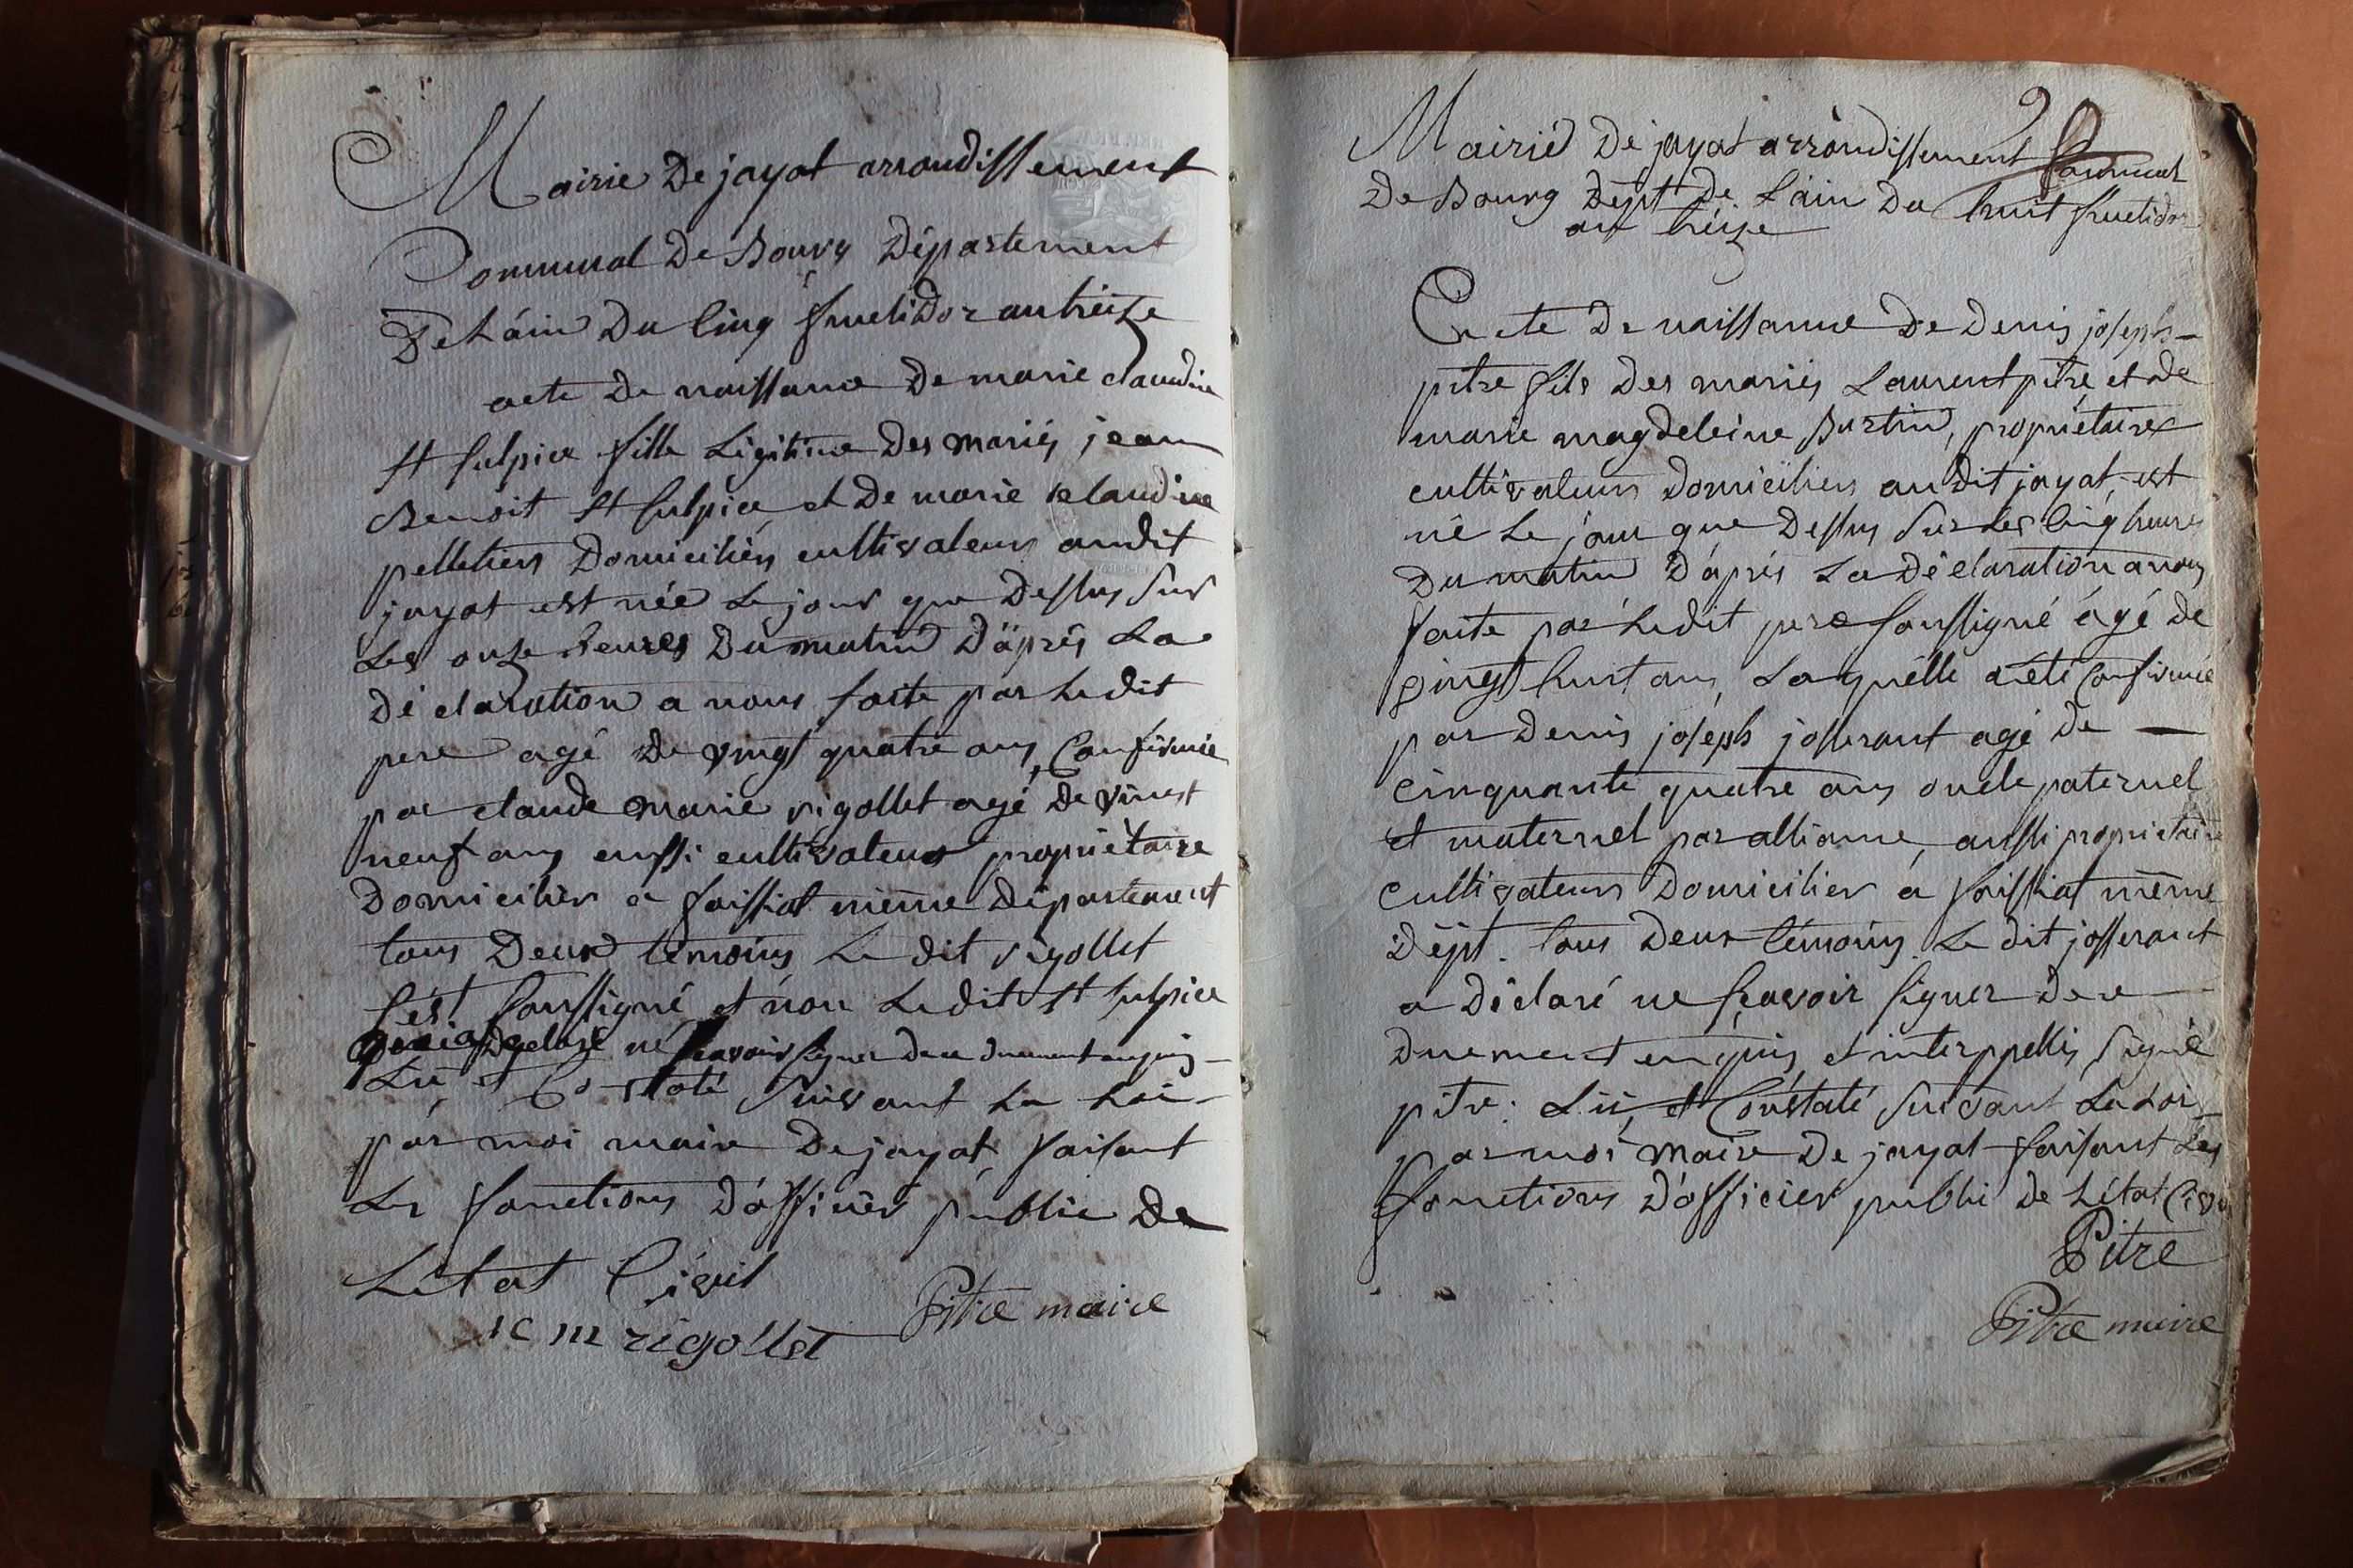 Mairie De jayat arrondissement
Communal De Bourg Département
De L'áin Du Cinq fructidor an treize
acte De naissance De marie claudine
St Sulpice fille Légitime Des mariés jean
Benoit St Sulpice et De marie claudine
pelletier Domiciliés cultivateurs audit
jayat est née Le jour que Dessus Sur
Les onze heures Du matin D'äprés La
Déclaration a nous faite par Ledit
pere agé De vingt quatre ans, Confirmée
par claude marie rigollet agé De vingt
neuf ans aussi cultivateur propriètaire
Domicilier a foissiat même Département
tous Deux témoins Le dit rigollet
s'est Soussigné et non Ledit St Sulpice
Declaré ne sçavoir signer de ce duement enquis
Lu et Constaté Suivant La Loi
par moi maire De jayat, faisant
Les fonctions D'officier public De
L'état Civil
c m rigollet Pitre maire
9
Mairie De jayat arrondissement Communal
De Bourg Dépt De L'áin Du huit fructidor
an treize
Acte De naissance De Denis joseph
pitre fils Des mariés Laurent pitre et De
marie magdeleine Burtin, propriétaires
cultivateurs Domiciliers audit jayat, est
né Le jour que Dessus Sur Les Cinq heures
Du matin D'áprés La Déclaration a nous
faite par Ledit pere soussigné ágé de
vingt huit ans, Laquélle a été Confirmée
par Denis joseph josserant agé de
cinquante quatre ans oncle paternel
et maternel par alliance, aussi propriétaire
cultivateurs Domicilier a foissiat même
Dépt. tous Deux témoins Le dit josserant
a Déclaré ne sçavoir signer De ce
Duement enquis et interppellés, Signé
pitre. Lu, et Constaté Suivant La Loi
par moi maire De jayat faisant Les
fonctions D'officier publi de L'état Civil
Pitre
Pitre maire